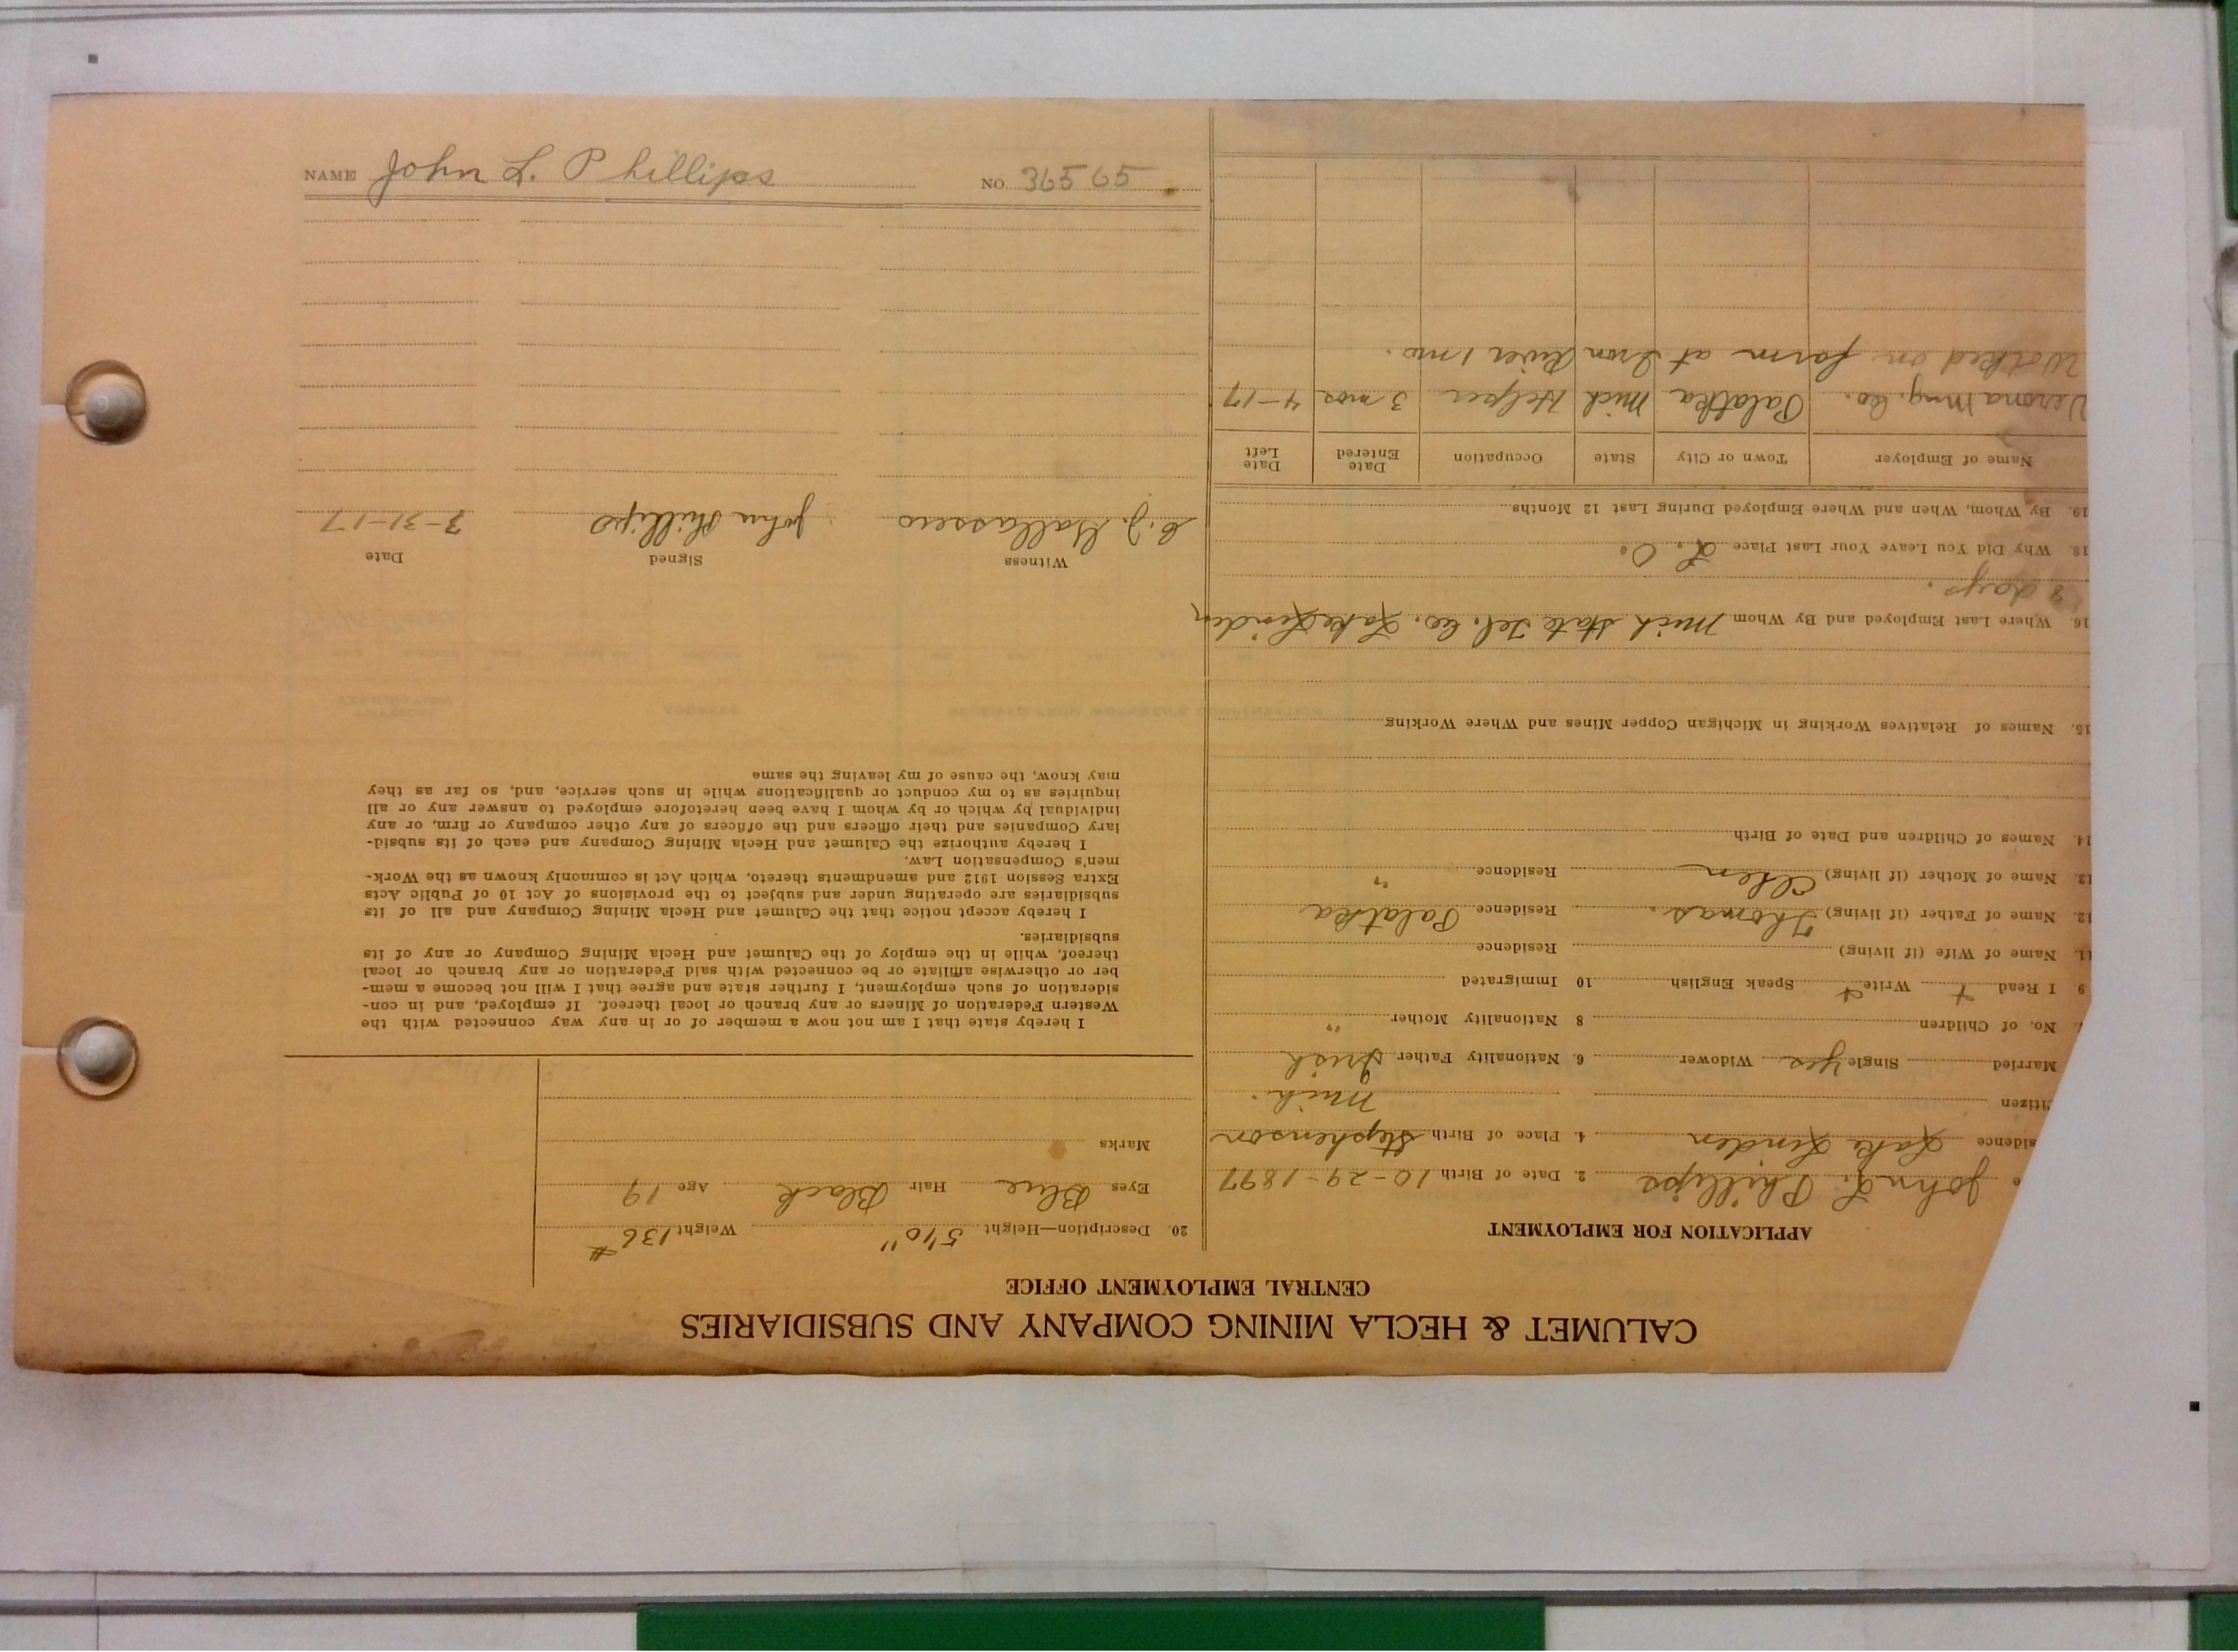 NAME John L. Phillips NO. 36565
CALUMET & HECLA MINING COMPANY AND SUBSIDIARIES
CENTRAL EMPLOYMENT OFFICE
APPLICATION FOR EMPLOYMENT
e John L. Phillips 2. Date of Birth 10-29-1897
sidence Lake Linden 4. Place of Birth Stephenson
itizen Mich.
Married Single Yes Widower 6. Nationality Father Irish
No. of Children 8 Nationality Mother "
9 I Read + Write + Speak English 10 Immigrated
11. Name of Wife (if living) Residence
12. Name of Father (if living) Thomas. Residence Palatka
13. Name of Mother (if living) Ellen Residence "
14. Names of Children and Date of Birth
15. Names of Relatives Working in Michigan Copper Mines and Where Working
16. Where Last Employed and By Whom Mich State Tel. Co. Lake Linden
8 days.
18. Why Did You Leave Your Last Place L. O.
19. By Whom, When and Where Employed During Last 12 Months
Name of Employer Town or City State Occupation Date Entered Date Left
Verona Mng. Co. Palatka Mich Helper 3 mos 4-17
Worked on farm at Iron River 1 mo.
20. Description—Height 5'10" Weight 136 #
Eyes Blue Hair Black Age 19
Marks
I hereby state that I am not now a member of or in any way connected with the
Western Federation of Miners or any branch or local thereof. If employed, and in con-
sideration of such employment, I further state and agree that I will not become a mem-
ber or otherwise affiliate or be connected with said Federation or any branch or local
thereof, while in the employ of the Calumet and Hecla Mining Company or any of its
subsidiaries.
I hereby accept notice that the Calumet and Hecla Mining Company and all of its
subsidiaries are operating under and subject to the provisions of Act 10 of Public Acts
Extra Session 1912 and amendments thereto, which Act is commonly known as the Work-
men's Compensation Law.
I hereby authorize the Calumet and Hecla Mining Company and each of its subsid-
iary Companies and their officers and the officers of any other company or firm, or any
individual by which or by whom I have been heretofore employed to answer any or all
inquiries as to my conduct or qualifications while in such service, and, so far as they
may know, the cause of my leaving the same
Witness Signed Date
C. J. John Phillips 7-31-17